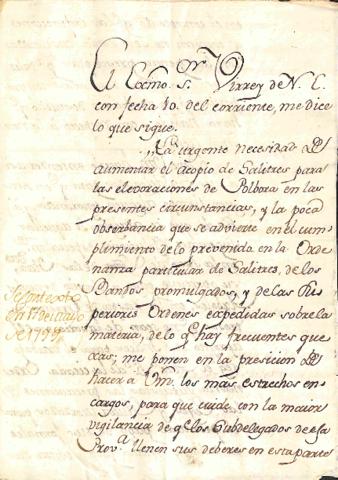 El Exmo. Sr. Virrey de N. E.
con fecha 10. del corriente, me dice
lo que sigue.
"La urgente necesidad de
aumentar el acopio de Salitres para
las elevoraciones de Polbora en las
presentes circunstancias, y la poca
observancia que se advierte en el cum
plimiento de lo prevenido en la Orde
nanza particular de Salitres, de los
Bandos promulgados, y de las Su
periores Ordenes expedidas sobre la
materia, de lo q.e hay frecuentes que
xas; me ponen en la presicion de
hacer à Vm. los mas estrechos en
cargos, para que cuide con la maior
vigilancia de q.e los Subdelegados de esa
Prov.a llenen sus deberes en esta parte
Se contextó
en 17 de
de 1799